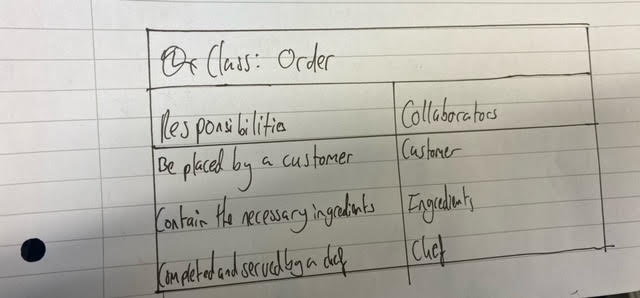 Class: Order
Responsibilities Collaborators
Be placed by a customer Customer
Contain the necessary ingredients Ingredients
Completed and served by a chef Chef